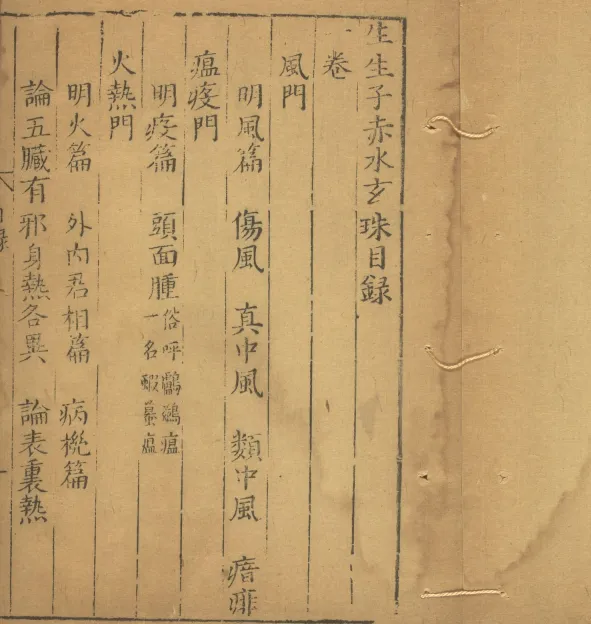 生生子赤水玄珠目録
一卷
風門
明風篇 傷風 真中風 類中風 瘖痱
瘟疫門
明疫篇 頭面腫 俗呼鸕鷀瘟 一名蝦蟇瘟
火熱門
明火篇 外内君相篇 病機篇
論五臟有邪身熱各異 論表裏熱